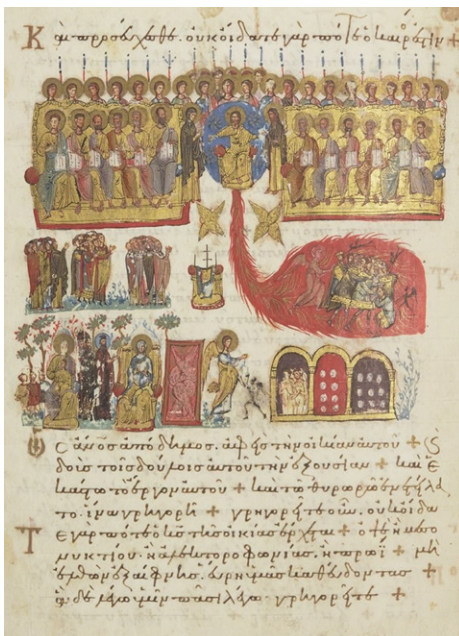 Καὶ προσεύχεσθε. οὐκ οἴδατε γὰρ πότε ὁ καιρός ἐστιν +
Ὡς ἄνος ἀπόδημος. ἀφεὶς τὴν οἰκίαν αὐτοῦ + καὶ
δοὺς τοῖς δούλοις αὐτοῦ τὴν ἐξουσίαν + καὶ ἑ
κάστω τὸ ἔργον αὐτοῦ + καὶ τῶ θυρωρῶ ἐνετείλα
το. ἵνα γρηγορῆ + γρηγορεῖτε οὖν. οὐκ οἴδα
Τε γὰρ πότε ὁ κς τῆς οἰκίας ἔρχεται + ὀψὲ ἢ μεσο
νυκτίου. ἢ ἀλεκτοροφωνίας. ἢ πρωΐ + μὴ
ἐλθὼν ἐξαίφνης. εὕρη ὑμᾶς καθεύδοντας +
ἃ δὲ λέγω ὑμῖν πᾶσι λέγω. γρηγορεῖτε +